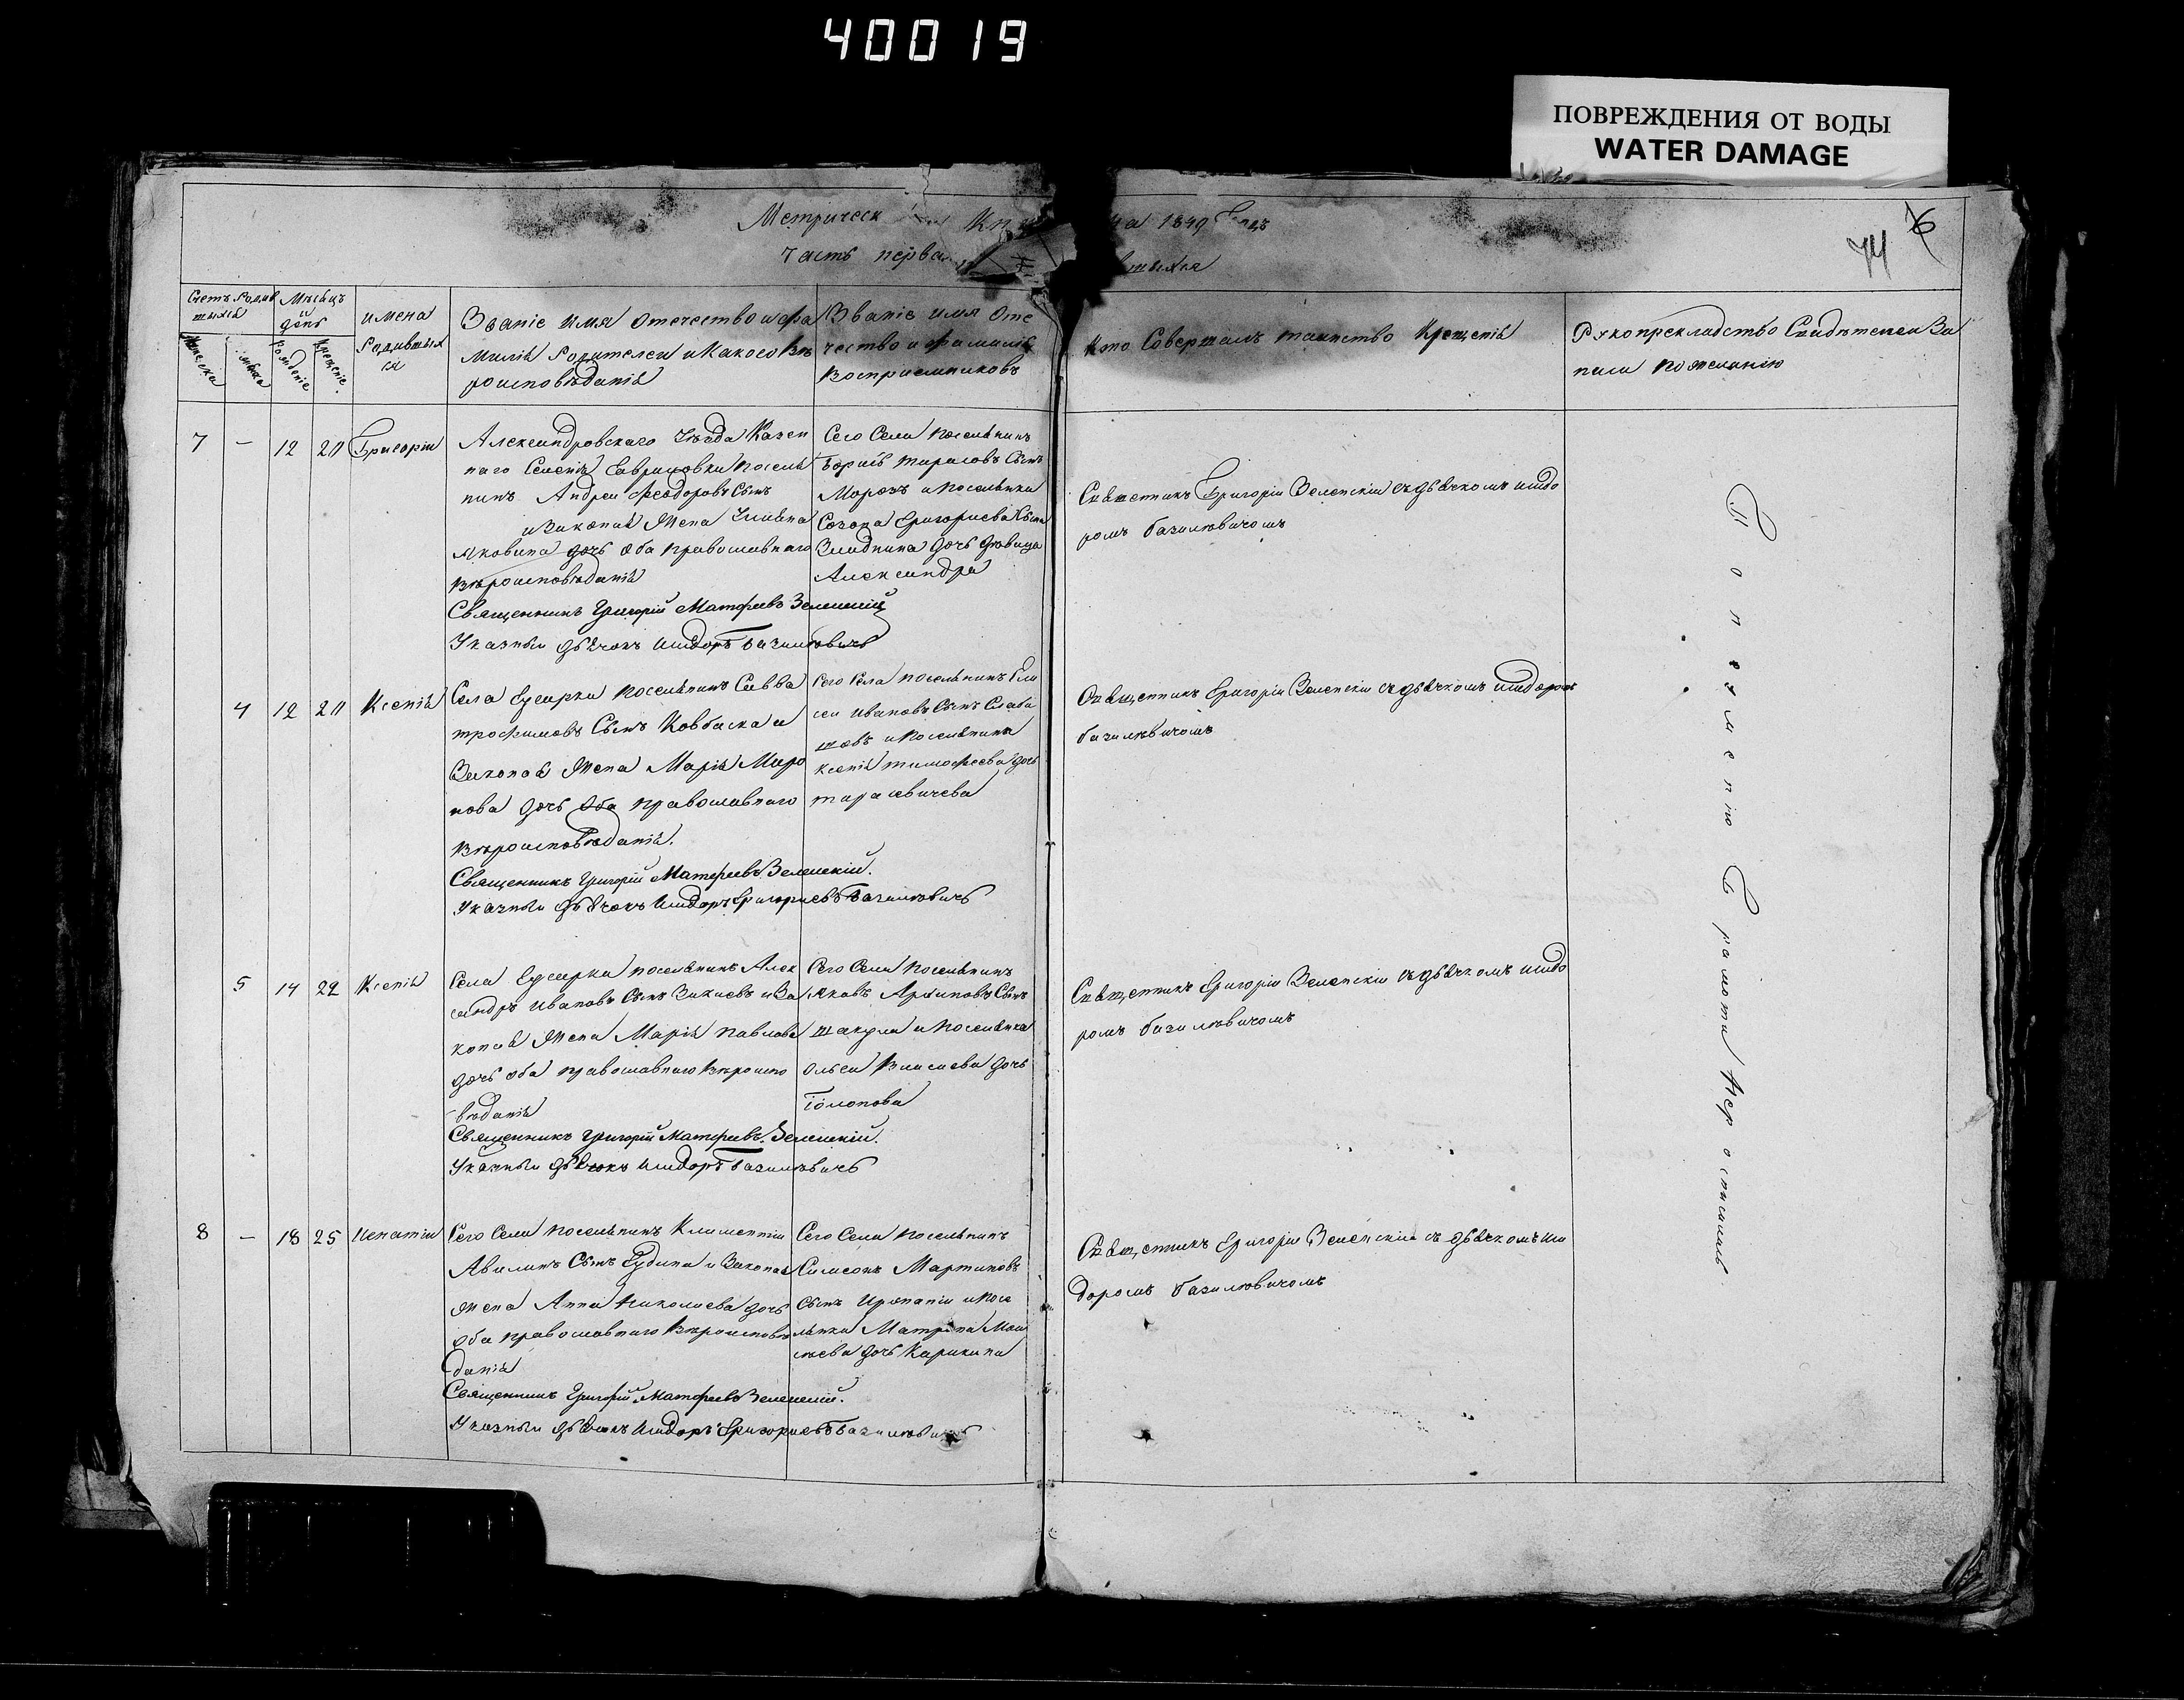 40019
ПОВРЕЖДЕНИЯ ОТ ВОДЫ
WATER DAMAGE
Метрическ на 1849 Годъ
Часть перва
74 6
Счетъ Родив
шыхся
Мужеска
женска
Мѣсяцъ
и
день
Рожденіе
Крещеніе.
имена
Родившых
ся
Званіе Имя Отечество и фа
милія Родителей и Какого Вѣ
роисповѣданія
Званіе имя Оте
чество и фамилія
Воспріемниковъ
Кто Совершалъ таинство Крещенія
Рукоприкладство Свидѣтелей За
писи по желанію
7 — 12 20 Григорій
Александровскаго Уѣзда Казен
наго Селенія Гавриловки поселя
нинъ Андрей Феодоровъ Сынъ
и Законая Жена
Яковина дочь Оба православнаго
вѣроисповѣданія
Священникъ Григорій Матфеевъ Зеленскій
Указный дьячокъ Исидоръ Базилювичъ
Сего Села поселянинъ
Борисъ Тарасовъ Сынъ
Морозъ и поселянки
Григориева Сына
дочь дѣвица
Александра
Священникъ Григорій Зеленскій съ дьячкомъ Исидо
ромъ Базилювичомъ
4 12 20 Ксенія
Села поселянинъ Савва
трофимовъ Сынъ Ковбаска и
Законая Жена Марія Миро
нова дочь Оба православнаго
вѣроисповѣданія.
Священникъ Григорій Матфеевъ Зеленскій.
Указный дьячокъ Исидоръ Григориевъ Базилювичъ
Сего Села поселянинъ Ели
сей Ивановъ Сынъ
и поселянина
Ксенія тимофеева дочь
тарасевичева
Священникъ Григорій Зеленскій съ дьячкомъ Исидоромъ
Базилювичомъ
5 14 22 Ксенія
Села поселянинъ Алек
сандръ Ивановъ Сынъ и За
коная Жена Марія Павлова
дочь Оба православнаго вѣроиспо
вѣданія
Священникъ Григорій Матфеевъ Зеленскій.
Указный дьячокъ Исидоръ Базилювичъ
Сего Села поселянинъ
Яковъ Архиповъ Сынъ
Шакула и поселянка
Ольга Власиева дочь
Священникъ Григорій Зеленскій съ дьячкомъ Исидо
ромъ Базилювичомъ
8 — 18 25 Игнатій
Сего Села поселянинъ Климентій
Сынъ Гудина и Законая
Жена Анна Николаева дочь
Оба православнаго вѣроисповѣ
данія
Священникъ Григорій Матфеевъ Зеленскій.
Указный дьячокъ Исидоръ Григориевъ Базилювичъ
Сего Села поселянинъ
Симеонъ Мартиновъ
Сынъ и посе
лянки Матрона
дочь
Священникъ Григорій Зеленскій съ дьячкомъ Иси
доромъ Базилювичомъ
По Грамоти